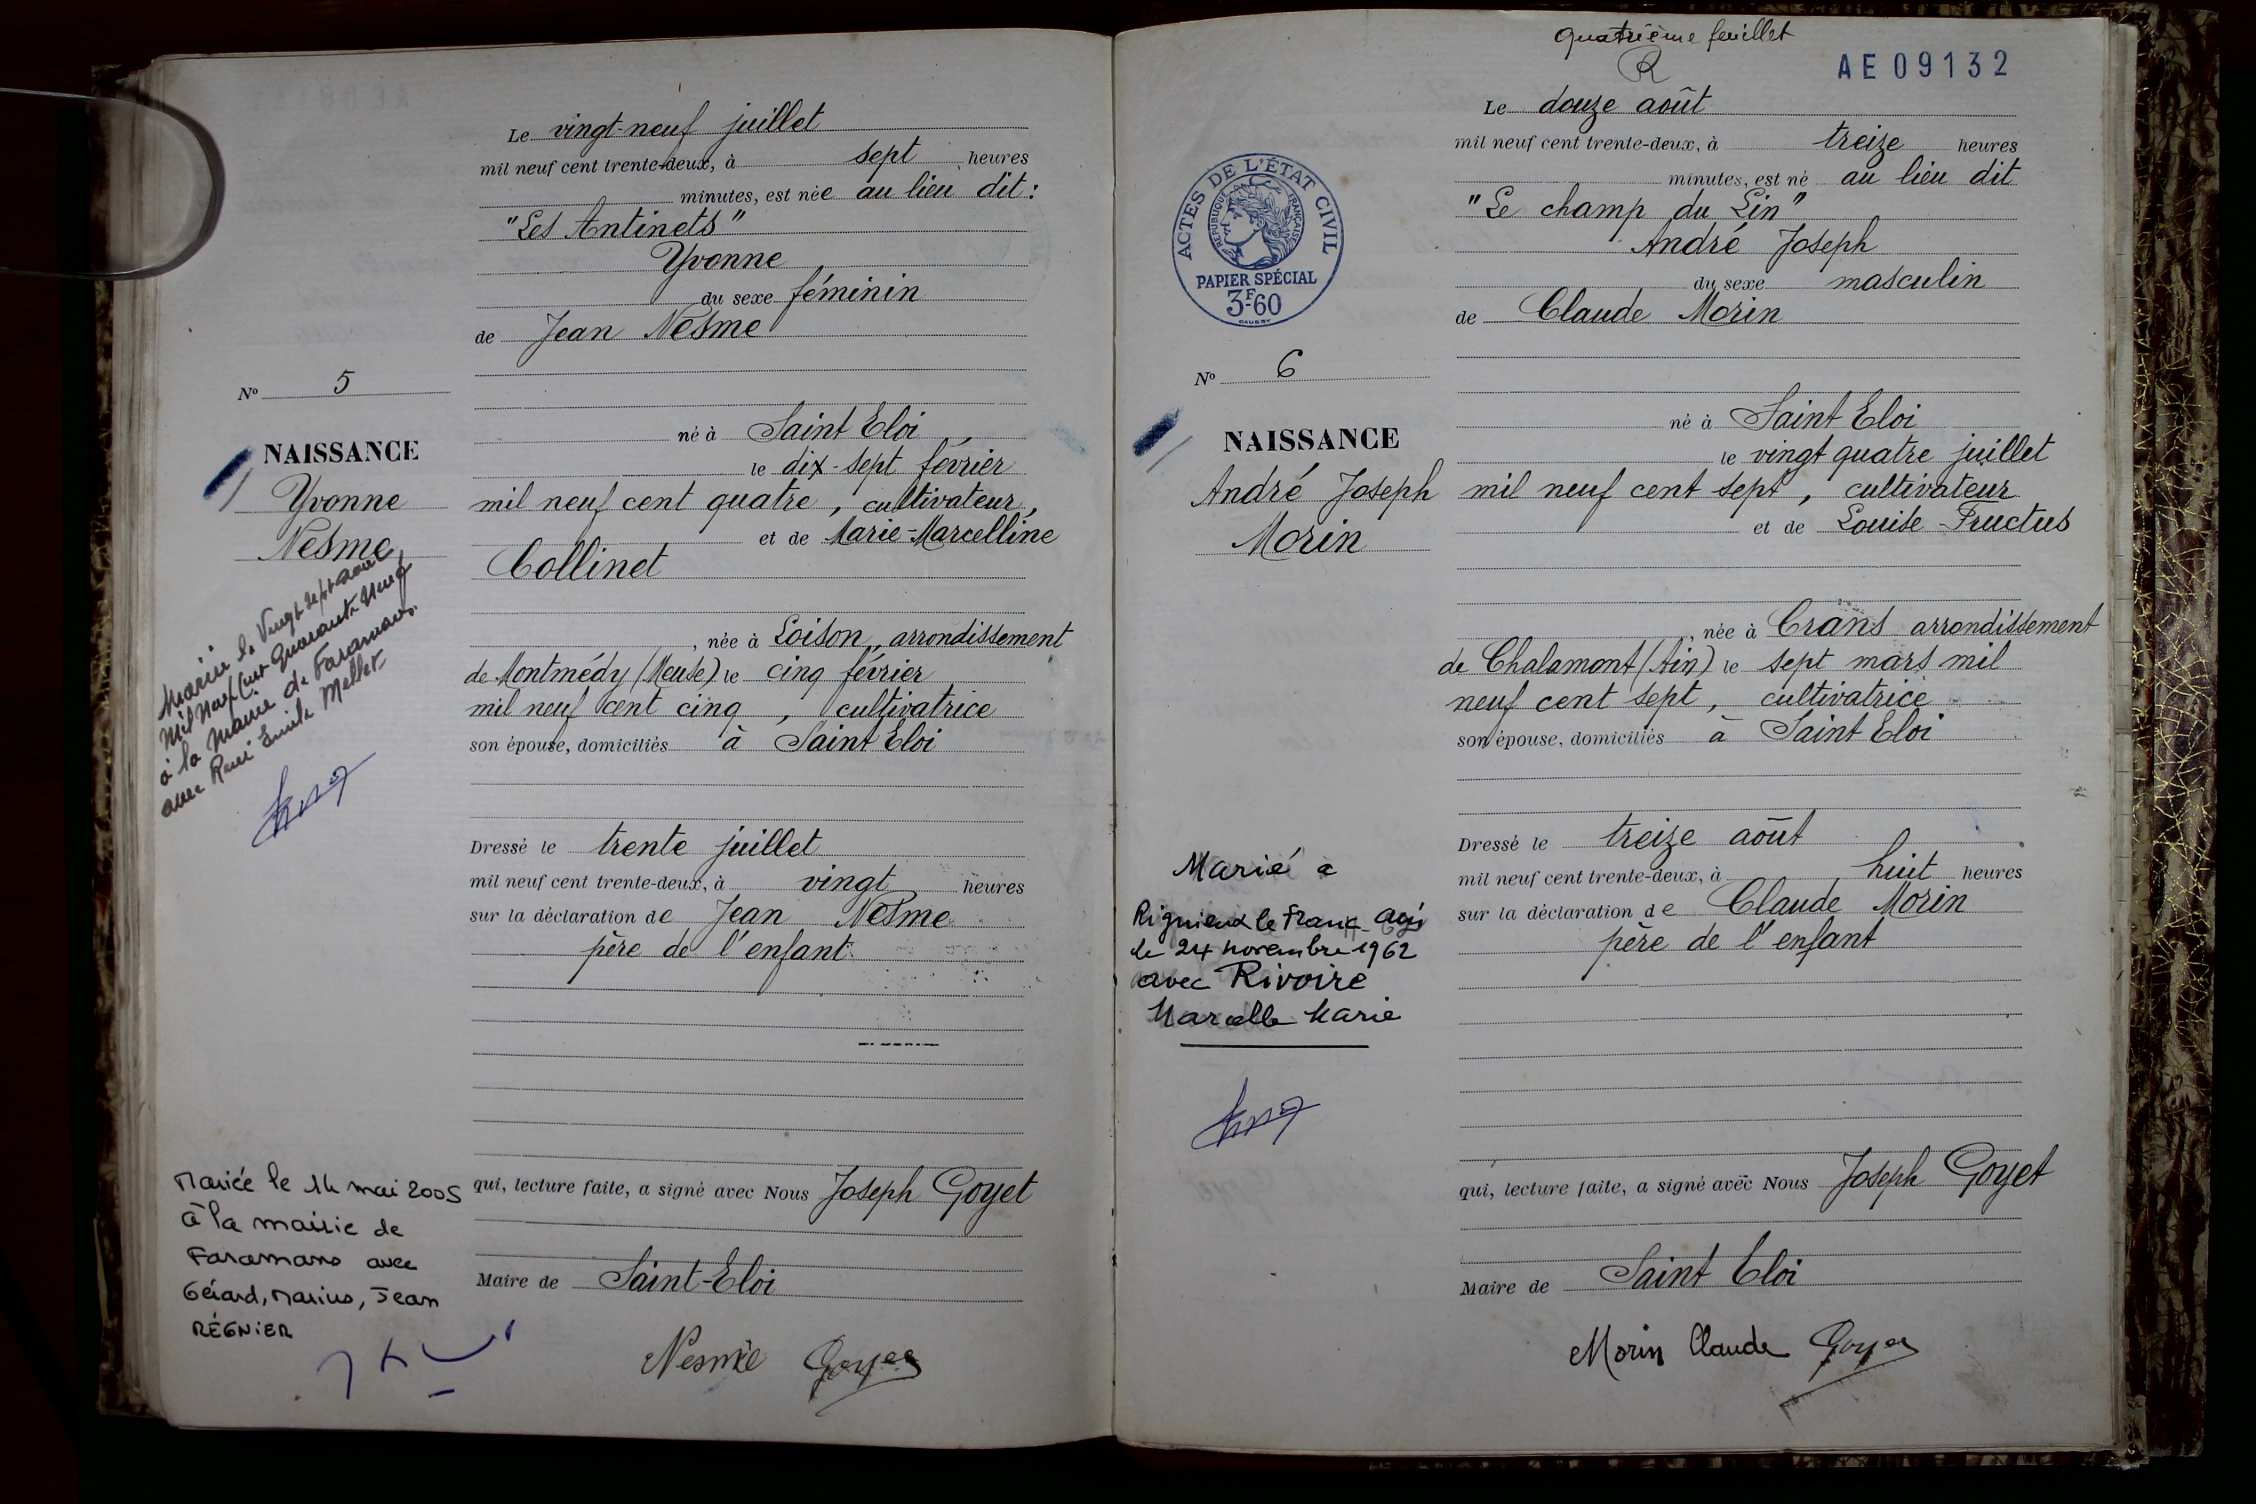 Le vingt-neuf juillet
mil neuf cent trente-deux, à sept heures
minutes, est née au lieu dit :
"Les Antinets"
Yvonne
du sexe féminin
de Jean Nesme
né à Saint Eloi
le dix-sept février
mil neuf cent quatre, cultivateur,
et de Marie-Marcelline
Collinet
, née à Loison, arrondissement
de Montmédy (Meuse) le cinq février
mil neuf cent cinq, cultivatrice
son épouse, domiciliés à Saint Eloi
Dressé le trente juillet
mil neuf cent trente-deux, à vingt heures
sur la déclaration de Jean Nesme
père de l'enfant
qui, lecture faite, a signé avec Nous Joseph Goyet
Maire de Saint-Eloi
Nesme Goyet
No 5
NAISSANCE
Yvonne
Nesme
Mariée le Vingt sept août
Mil Neuf Cent Quarante Neuf
à la Mairie de Faramans
avec René Emile Mellet
Mariée le 14 mai 2005
à la mairie de
Faramans avec
Gérard, Marius, Jean
RÉGNIER
quatrième feuillet
R
AE09132
Le douze août
mil neuf cent trente-deux, à treize heures
minutes, est né au lieu dit
"Le champ du Lin"
André Joseph
du sexe masculin
de Claude Morin
né à Saint Eloi
le vingt quatre juillet
mil neuf cent sept, cultivateur
et de Louise Fructus
, née à Crans arrondissement
de Chalamont (Ain) le sept mars mil
neuf cent sept, cultivatrice
son épouse, domiciliés à Saint Eloi
Dressé le treize août
mil neuf cent trente-deux, à huit heures
sur la déclaration de Claude Morin
père de l'enfant
qui, lecture faite, a signé avec Nous Joseph Goyet
Maire de Saint Eloi
Morin Claude Goyet
ACTES DE L'ÉTAT CIVIL
RÉPUBLIQUE FRANÇAISE
PAPIER SPÉCIAL
3F60
No 6
NAISSANCE
André Joseph
Morin
Marié à
Rignieux le Franc
le 24 novembre 1962
avec Rivoire
Marcelle Marie